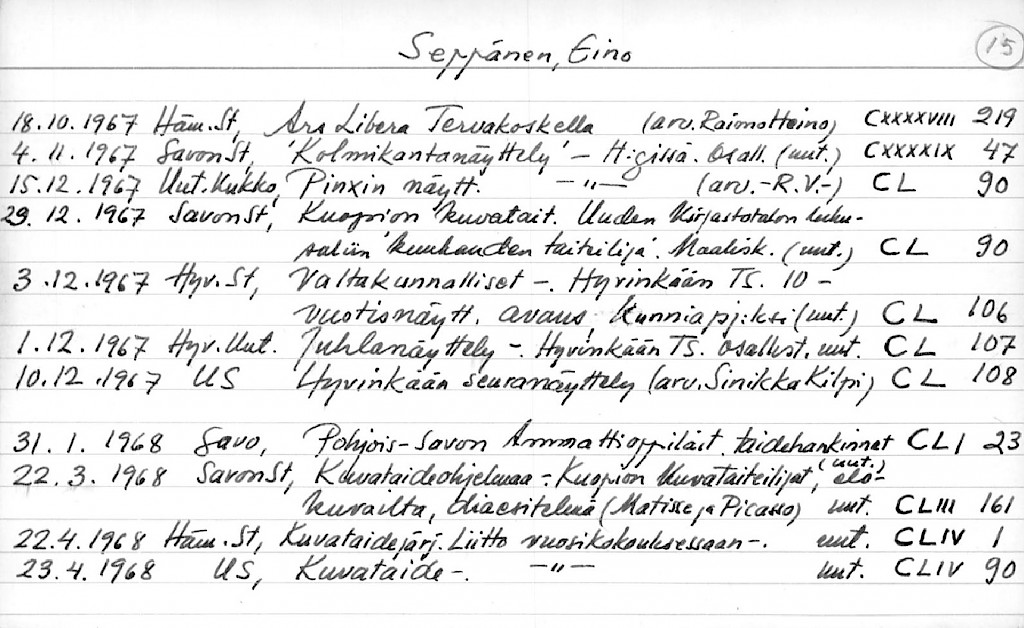 Seppänen, Eino 15
18.10.1967 Häm.St, Ars Libera Tervakoskella (arv. Raimo Heino) CXXXXVIII 219
4.11.1967 SavonSt, 'Kolmikantanäyttely' - H:gissä. Osall. (uut.) CXXXXIX 47
15.12.1967 Uut.Kukko, Pinxin näytt. —"— (arv.-R.V.-) CL 90
29.12.1967 SavonSt, Kuopion kuvatait. Uuden Kirjastotalon luku-
saliin 'kuukauden taiteilija'. Maalisk. (uut.) CL 90
3.12.1967 Hyv.St, Valtakunnalliset -. Hyvinkään TS. 10-
vuotisnäytt. avaus, Kunniapj:ksi (uut.) CL 106
1.12.1967 Hyv.Uut. Juhlanäyttely -. Hyvinkään TS. osallist. uut. CL 107
10.12.1967 US Hyvinkään seuranäyttely (arv. Sinikka Kilpi) CL 108
31.1.1968 Savo, Pohjois-Savon Ammattioppilait. taidehankinnat CLI 23
22.3.1968 SavonSt, Kuvataideohjelmaa -. Kuopion Kuvataiteilijat, (uut.) elo-
kuvailta, diaesitelmä (Matisse ja Picasso) uut. CLIII 161
22.4.1968 Häm.St, Kuvataidejärj. Liitto vuosikokouksessaan -. uut. CLIV 1
23.4.1968 US, Kuvataide -. —"— uut. CLIV 90